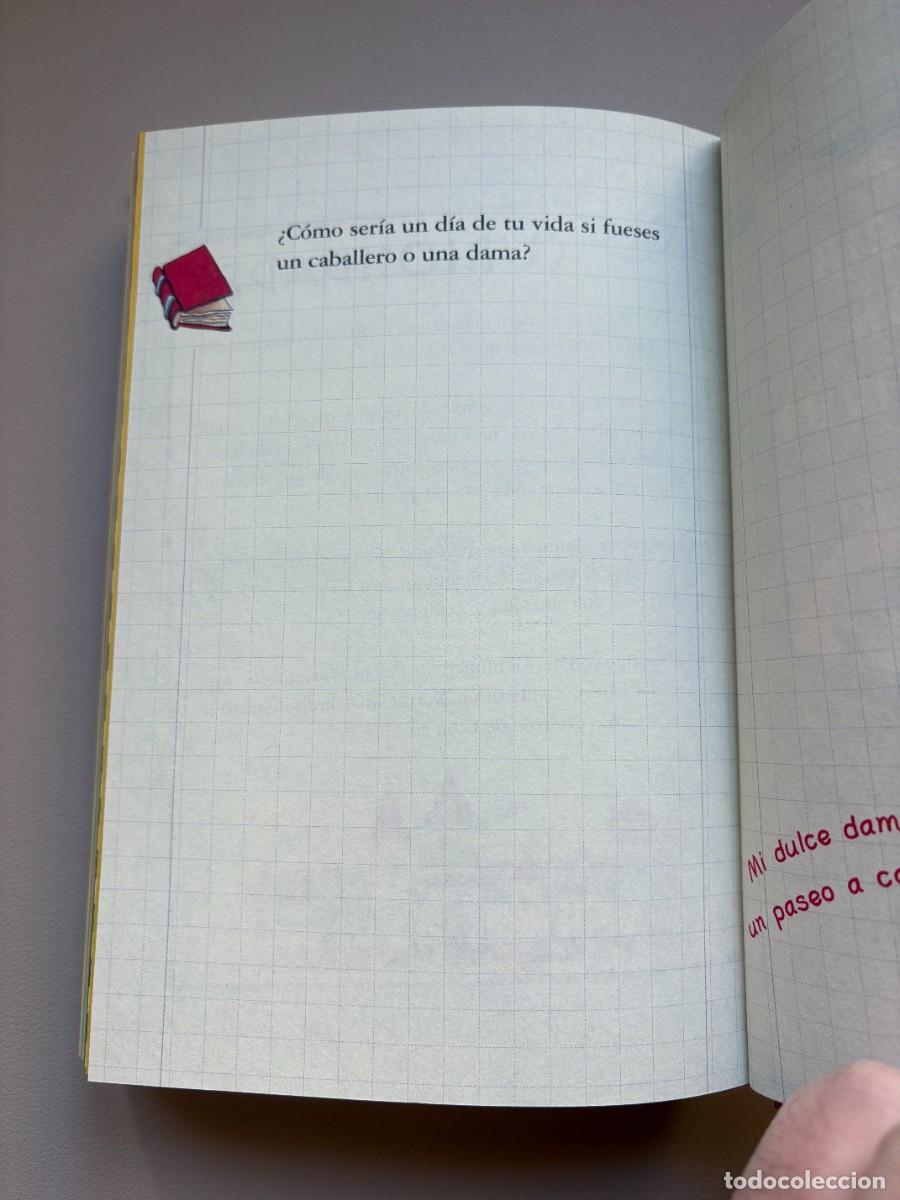 ¿Cómo sería un día de tu vida si fueses
un caballero o una dama?
Mi dulce dam
un paseo a
todocoleccion